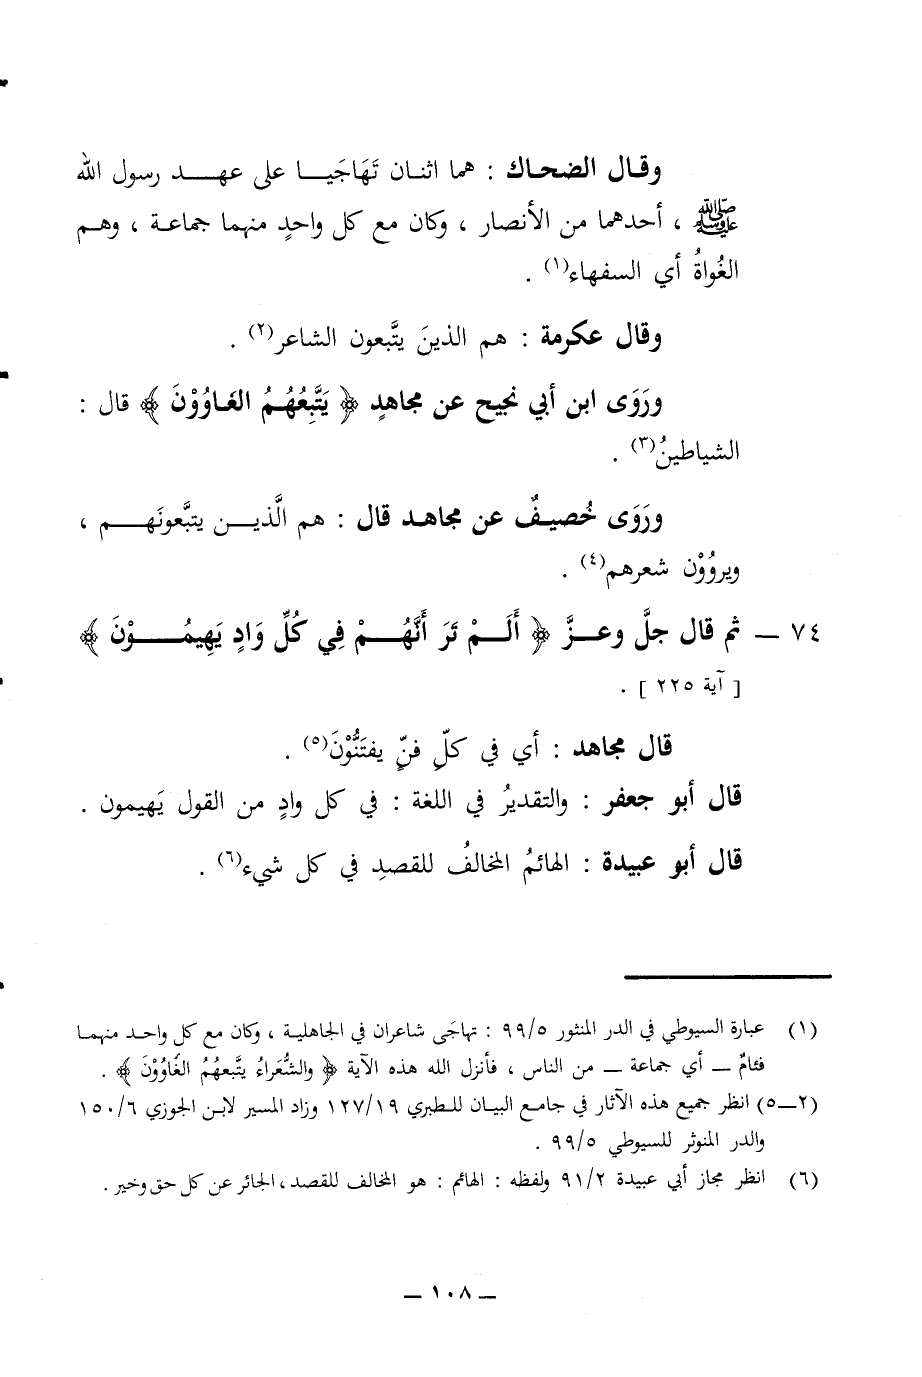 وقال الضحاك : هما اثنان تَهَاجَيا على عهد رسول الله
ﷺ ، أحدهما من الأنصار ، وكان مع كل واحدٍ منهما جماعة ، وهم
الغُواةُ أي السفهاء(١) .
وقال عكرمة : هم الذينَ يتَّبعون الشاعر(٢) .
ورَوَى ابن أبي نجيح عن مجاهدٍ ﴿ يَتَّبِعُهُمُ الغَاوُوْنَ ﴾ قال :
الشياطينُ(٣) .
ورَوَى خُصيفٌ عن مجاهد قال : هم الَّذين يتبَّعونَهم ،
ويروُوْن شعرهم(٤) .
٧٤ ـ ثم قال جلَّ وعزَّ ﴿ أَلَمْ تَرَ أَنَّهُمْ فِي كُلِّ وَادٍ يَهِيمُوْنَ ﴾
[ آية ٢٢٥ ] .
قال مجاهد : أي في كلّ فنٍّ يفتَنُّوْنَ(٥) .
قال أبو جعفر : والتقديرُ في اللغة : في كل وادٍ من القول يَهيمون .
قال أبو عبيدة : الهائمُ المخالفُ للقصدِ في كل شيء(٦) .
(١) عبارة السيوطي في الدر المنثور ٩٩/٥ : تهاجَى شاعران في الجاهلية ، وكان مع كل واحد منهما
فئامٌ ـ أي جماعة ـ من الناس ، فأنزل الله هذه الآية ﴿ والشُّعَراءُ يتَّبعهُمُ الغَاوُوْنَ ﴾ .
(٢ـ٥) انظر جميع هذه الآثار في جامع البيان للطبري ١٢٧/١٩ وزاد المسير لابن الجوزي ١٥٠/٦
والدر المنوثر للسيوطي ٩٩/٥ .
(٦) انظر مجاز أبي عبيدة ٩١/٢ ولفظه : الهائم : هو المخالف للقصد، الجائر عن كل حق وخير .
ـ ١٠٨ ـ